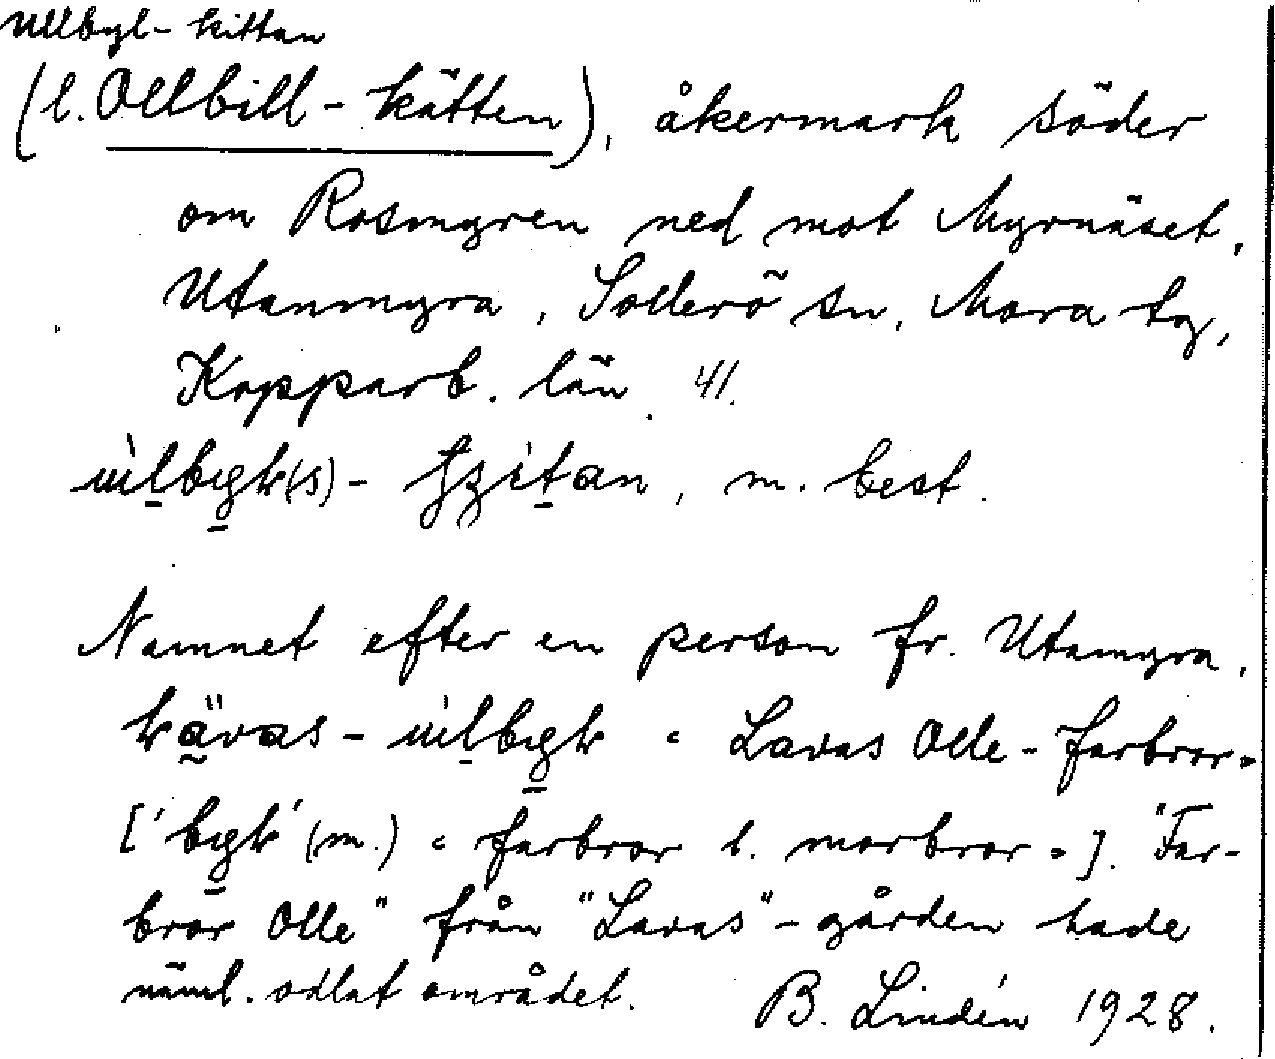 Ullbyl-kittan
(l. Ollbill-kätten), åkermark söder
om Rosmyren ned mot Myrnäset,
Utanmyra, Sollerö sn, Mora tg,
Kopparb. län. 41.
m. best.
Namnet efter en person fr. Utamyra,
Lavas Olle-farbror=
(m.) = farbror l. morbror=]. "Far-
bror Olle" från "Lavas"-gården hade
näml. odlat området. B. Lindén 1928.